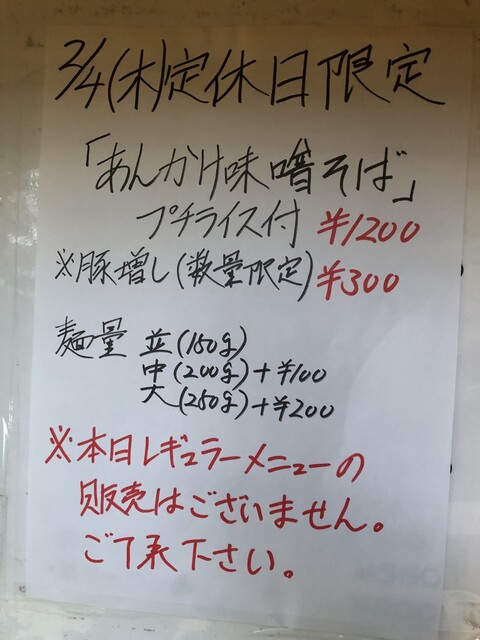 2/4(木)定休日限定
「あんかけ味噌そば」
プチライス付 ¥1200
※豚増し(数量限定)¥300
麺量 並(150g)
中(200g)+¥100
大(250g)+¥200
※本日レギュラーメニューの
販売はございません。
ご了承下さい。